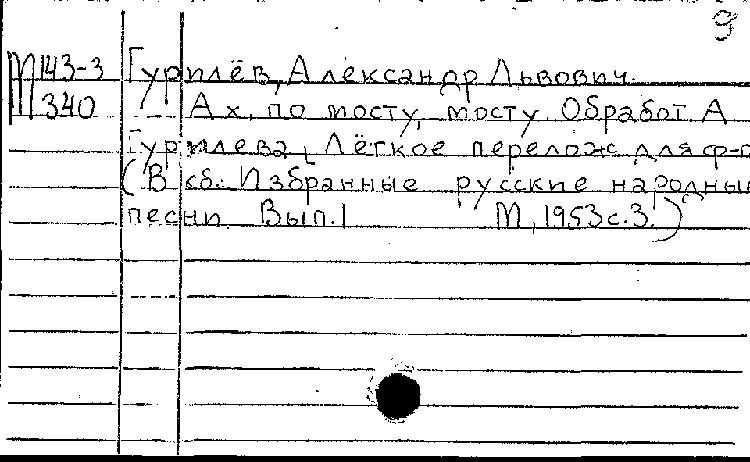 9
М143-3 Гурилёв, Александр Львович.
М340 Ах, по мосту, мосту. Обработ. А
Гурилева. Лёгкое перелож для ф-п
(В сб.: Избранные русские народные
песни. Вып. 1 М, 1953 с. 3.)